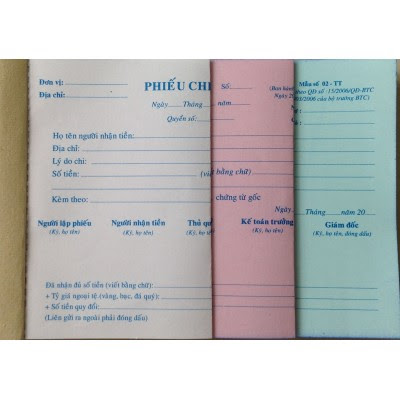 Đơn vị:
Địa chỉ:
PHIẾU CHI
Ngày Tháng năm
Quyển số:
Họ tên người nhận tiền:
Địa chỉ:
Lý do chi:
Số tiền: (viết bằng chữ)
Kèm theo:
Người lập phiếu Người nhận tiền Thủ qu
(Ký, họ tên) (Ký, họ tên) (Ký,
Đã nhận đủ số tiền (viết bằng chữ)
+ Tỷ giá ngoại tệ (vàng, bạc, đá quý):
+ Số tiền quy đổi:
(Liên gửi ra ngoài phải đóng dấu)
Số:
(Ban hành
Ngày 2
chứng từ gốc
Ngày
Kế toán trưởng
(Ký, họ tên)
Mẫu số 02 - TT
theo QĐ số : 15/2006/QĐ-BTC
/2006 của bộ trưởng-BTC)
Tháng năm 20
Giám đốc
(Ký, họ tên, đóng dấu)